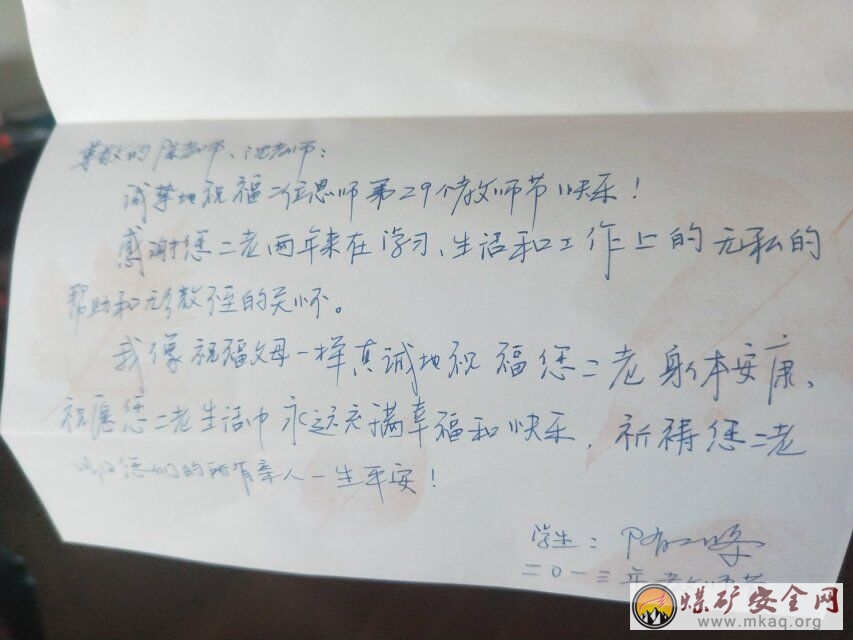 尊敬的陈老师、沈老师：
诚挚地祝福二位恩师第29个教师节快乐！
感谢您二老两年来在学习、生活和工作上的无私的
帮助和的关怀。
我像祝福父母一样真诚地祝福您二老身体安康、
祝愿您二老生活中永远充满幸福和快乐，祈祷您二老
以及您们的所有亲人一生平安！
学生：
二〇一三年教师节
煤矿安全网
www.mkaq.org